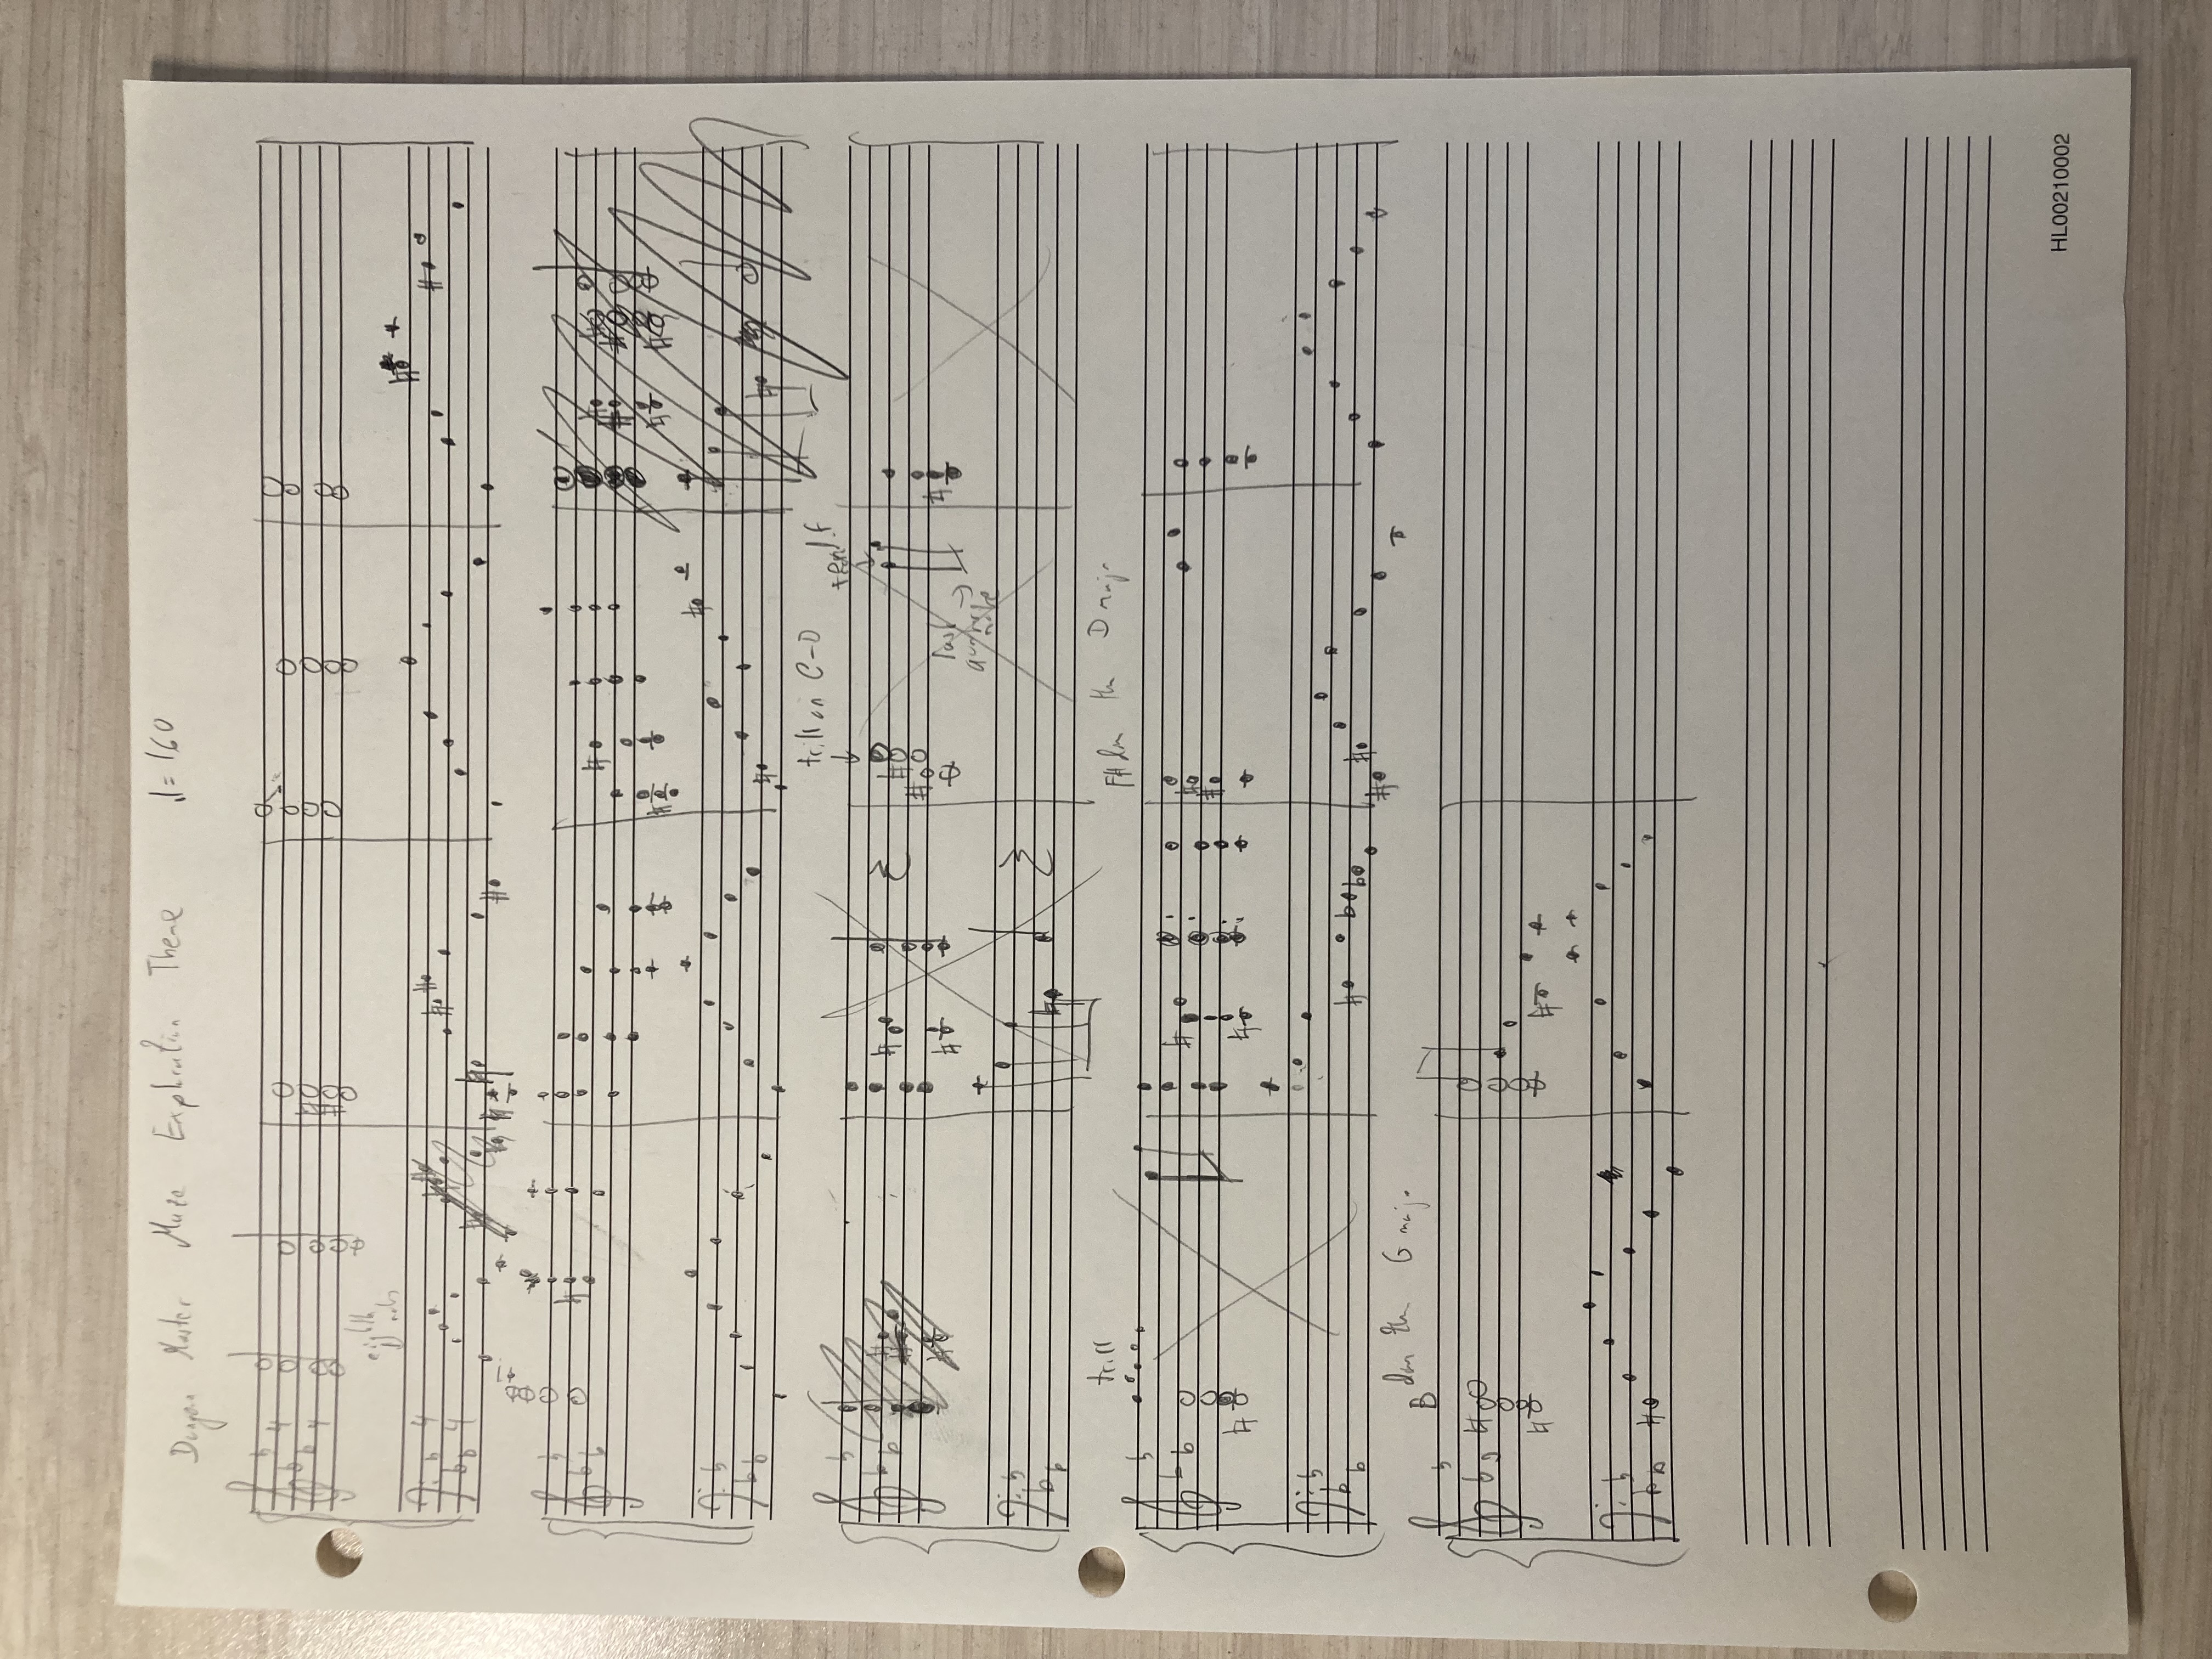 Dungeon Master Maze Exploration Theme ♩=160
4 4
eighth notes
4 4
trill on C-D
last quarter note
trill
F# dim then D major
B dim then G major
HL00210002